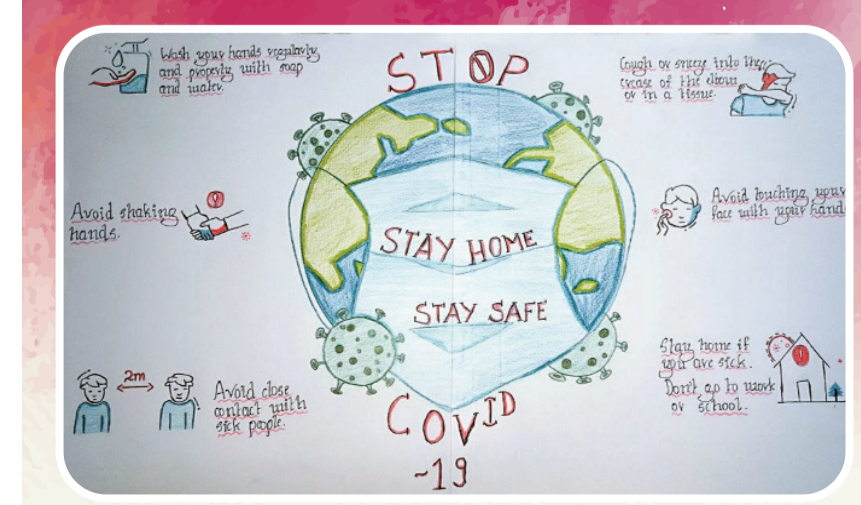 STOP
Wash your hands regularly
and properly with soap
and water.
Cough or sneeze into the
crease of the elbow
or in a tissue.
Avoid shaking
hands.
Avoid touching your
face with your hand
STAY HOME
STAY SAFE
2m
Avoid close
contact with
sick people.
Stay home if
you are sick.
Don't go to work
or school.
COVID
-19